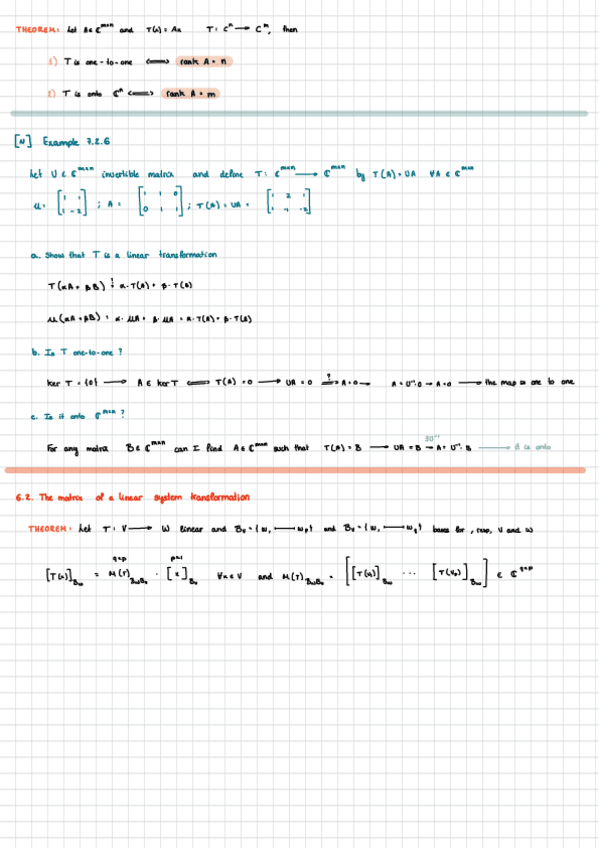 THEOREM: Let A∈ℂ^m×n and T(x) = Ax T: ℂ^n → ℂ^m, then
1) T is one-to-one ⟺ rank A = n
2) T is onto ℂ^n ⟺ rank A = m
[N] Example 7.2.6
Let U ∈ ℂ^m×m invertible matrix and define T: ℂ^m×n → ℂ^m×n by T(A) = UA ∀A ∈ ℂ^m×n
U = [1 1; 1 -2] ; A = [1 1 0; 0 1 1] ; T(A) = UA = [1 2 1; 1 -1 -2]
a. Show that T is a linear transformation
T(αA + βB) = α·T(A) + β·T(B)
U(αA + βB) = α·UA + β·UA = α·T(A) + β·T(B)
b. Is T one-to-one ?
ker T = {0} → A ∈ ker T ⟺ T(A) = 0 → UA = 0 ⟹? A = 0 → A = U⁻¹·0 → A = 0 → the map is one to one
c. Is it onto ℂ^m×n ?
For any matrix B ∈ ℂ^m×n can I find A ∈ ℂ^m×n such that T(A) = B → UA = B → A = U⁻¹·B → it is onto
∃U⁻¹
6.2. The matrix of a linear system transformation
THEOREM: Let T: V → W linear and and bases for, resp, V and W
[T(x)]_Bw = M(T)_BwBv · [x]_Bv ∀x ∈ V and M(T)_BwBv = [[T(v₁)]_Bw ... [T(vp)]_Bw] ∈ ℂ^q×p
q×p p×1